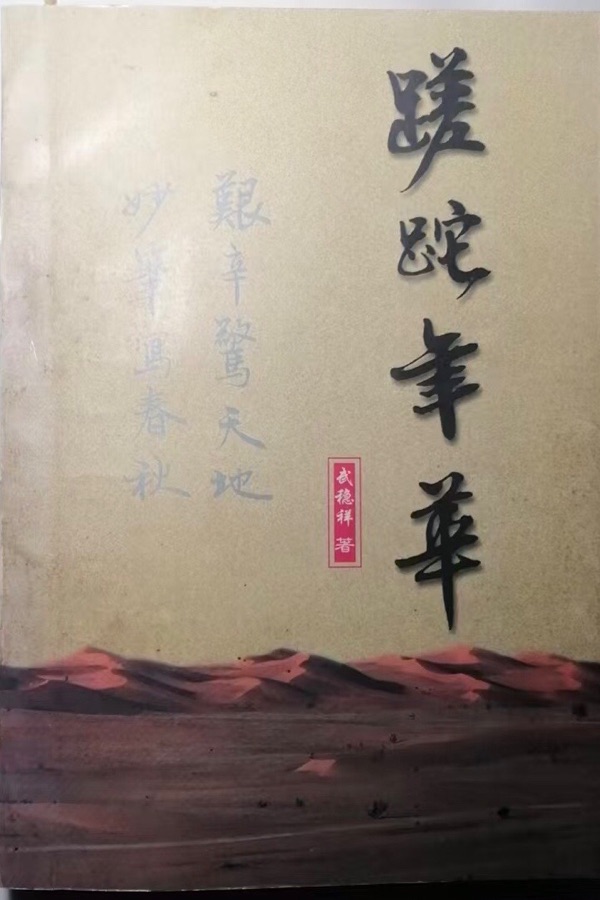 蹉跎年華
武穩祥 著
艱辛驚天地
妙筆寫春秋